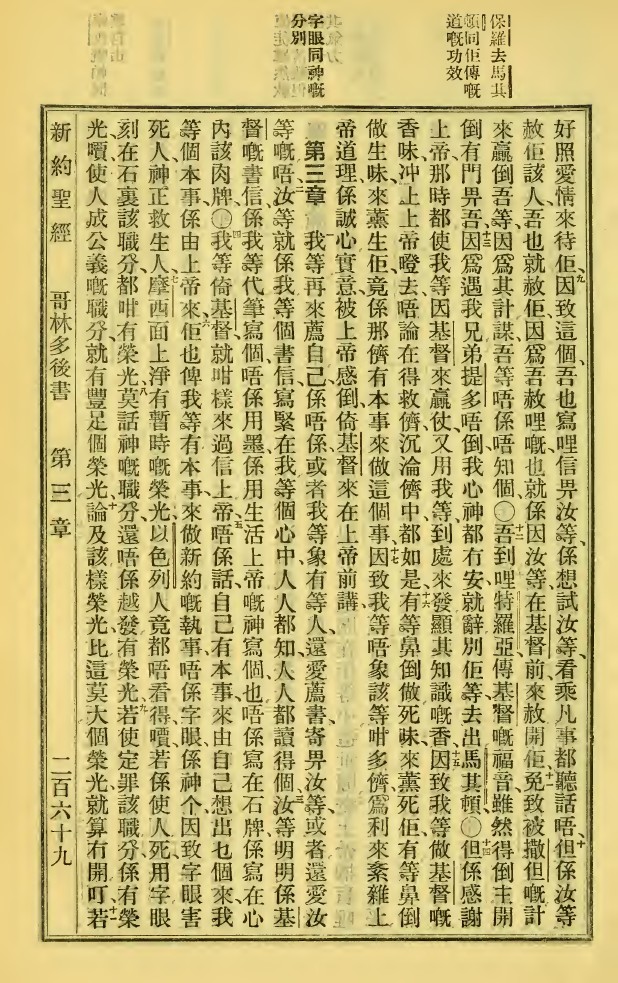 保羅去馬其
頓同佢傳嘅
道嘅功效
字眼同神嘅
分別
好照愛情來待佢、九因致這個、吾也寫哩信畀汝等、係想試汝等、看乘凡事都聽話唔、十但係汝等
赦佢該人吾也就赦佢因爲吾赦哩嘅也就係因汝等在基督前來赦開佢、十一免致被撒但嘅計
來贏倒吾等、因爲其計謀吾等唔係唔知個、〇十二吾到哩特羅亞、傳基督嘅福音、雖然得倒主開
倒有門畀吾、十三因爲遇我兄弟提多唔倒、我心神都冇安、就辭別佢等、去出馬其頓、〇十四但係感謝
上帝、那時都使我等因基督來贏仗、又用我等、到處來發顯其知識嘅香、十五因致我等做基督嘅
香味、沖上上帝嗒去、唔論在得救儕沉淪儕中、都如是、十六有等鼻倒做死味來薰死佢、有等鼻倒
做生味來薰生佢、竟係那儕有本事來做這個事、十七因致我等唔象該等咁多儕、爲利來紊雜上
帝道理、係誠心實意、被上帝感倒、倚基督來在上帝前講、
第三章 一我等再來薦自己係唔係、或者我等象有等人、還愛薦書寄畀汝等、或者還愛汝
等嘅唔、二汝等就係我等個書信、寫緊在我等個心中、人人都知、人人都讀得個、三汝等明明係基
督嘅書信、係我等代筆寫個、唔係用墨、係用生活上帝嘅神寫個、也唔係寫在石牌、係寫在心
內該肉牌、〇四我等倚基督就咁樣來過信上帝、五唔係話自己有本事來由自己想出乜個來、我
等個本事、係由上帝來、六佢也俾我等有本事、來做新約嘅執事、唔係字眼、係神个、因致字眼害
死人、神正救生人、七摩西面上淨有暫時嘅榮光、以色列人竟都唔看得𠹌、若係使人死、用字眼
刻在石裏該職分、都咁有榮光、八莫話神嘅職分、還唔係越發有榮光、九若使定罪該職分、係有榮
光𠹌、使人成公義嘅職分、就有豐足個榮光、十論及該樣榮光、比這莫大個榮光、就算冇開叮、十一若
新約聖經 哥林多後書 第三章 二百六十九